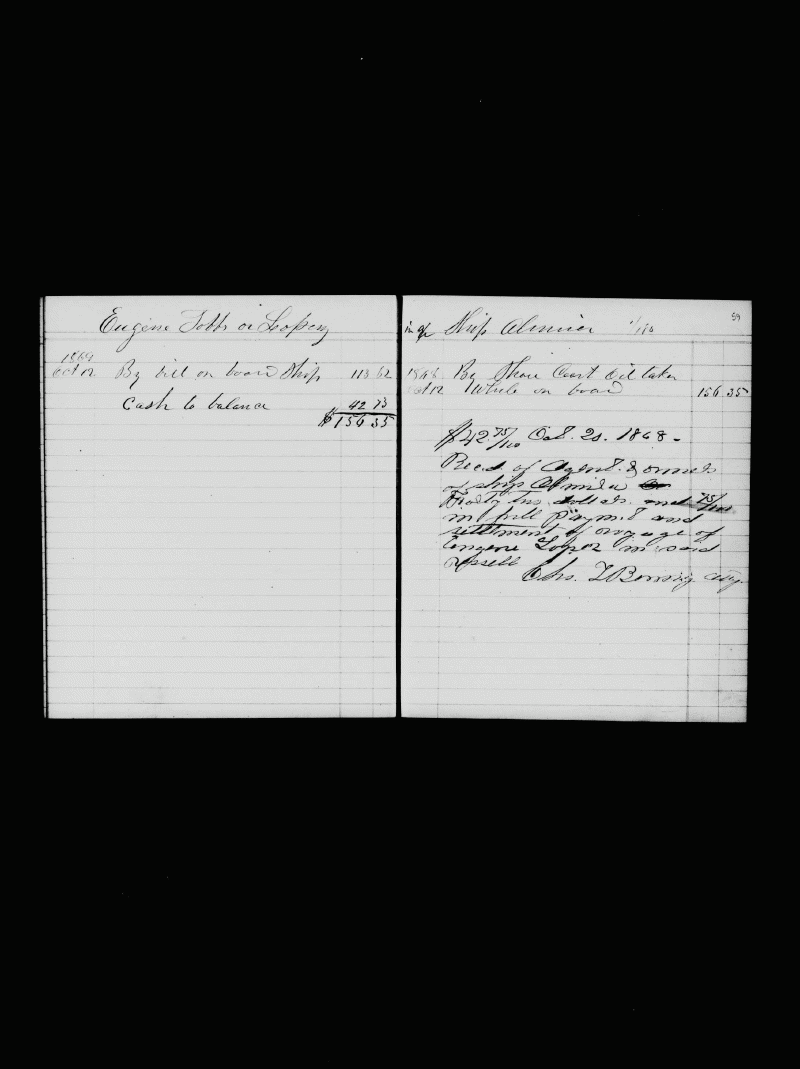 Eugene Tobbs or Lopez
1869
Oct 12 By bill on board Ship 113 62
Cash to balance 42 73
$156 35
59
in a/c Ship Almira 1/180
1868 By Share Coast Oil taken
Oct 12 Whole on board 156 35
$42 75/100 Oct. 20. 1868 -
Recd. of Agent & owners
of ship Almira
Forty two dollars and 75/100
in full paym't and
settlement of voyage of
Eugene Lopez in said
vessell
Chs. T Bonney Atty